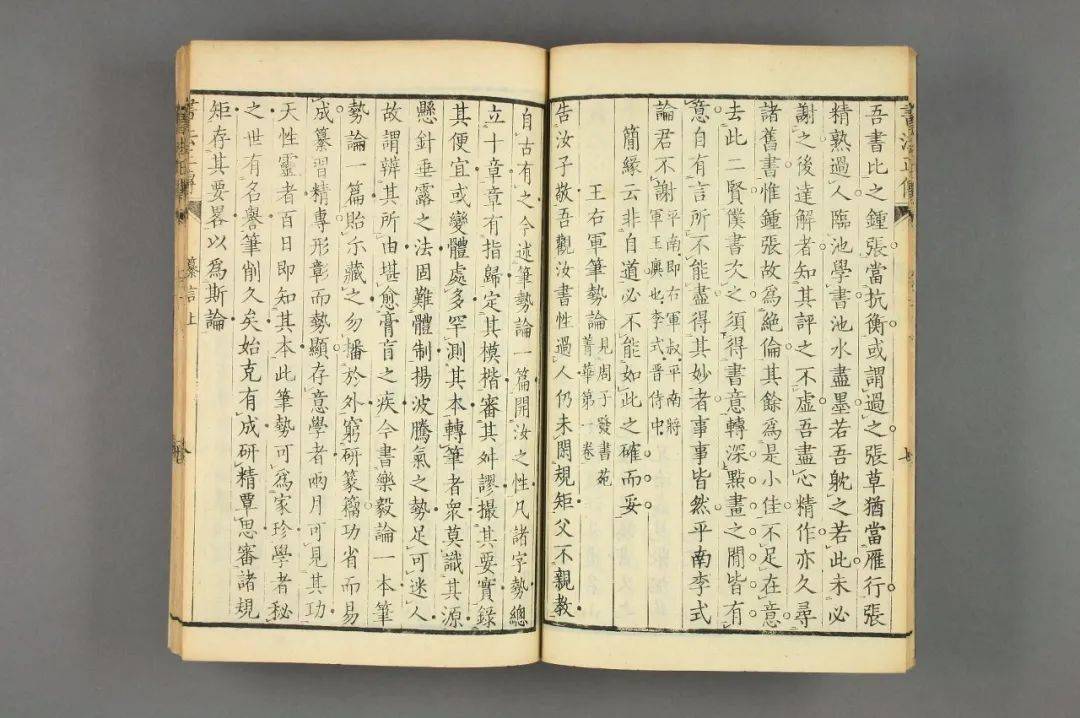 吾書比之鍾張當抗衡或謂過之張草猶當雁行張
精熟過人臨池學書池水盡墨若吾躭之若此未必
謝之後達解者知其評之不虛吾盡心精作亦久尋
諸舊書惟鍾張故爲絶倫其餘爲是小佳不足在意
去此二賢僕書次之須得書意轉深點畫之閒皆有
意自有言所不能盡得其妙者事事皆然平南李式
論君不謝平南即右軍叔平南將
軍王廙也李式晋侍中
簡緣云非自道必不能如此之確而妥
王右軍筆勢論見周于發書苑
菁華第一卷
告汝子敬吾觀汝書性過人仍未閑規矩父不親教
自古有之今述筆勢論一篇開汝之性凡諸字勢總
立十章章有指歸定其模楷審其舛謬撮其要實録
其便宜或變體處多罕測其本轉筆者衆莫識其源
懸針垂露之法固難體制揚波騰氣之勢足可迷人
故謂辨其所由堪愈膏肓之疾今書樂毅論一本筆
勢論一篇貽尒藏之勿播於外窮研篆籀功省而易
成纂習精專形彰而勢顯存意學者兩月可見其功
天性靈者百日即知其本此筆勢可爲家珍學者秘
之世有名譽筆削久矣始克有成研精覃思審諸規
矩存其要畧以爲斯論
纂言上
書法正傳